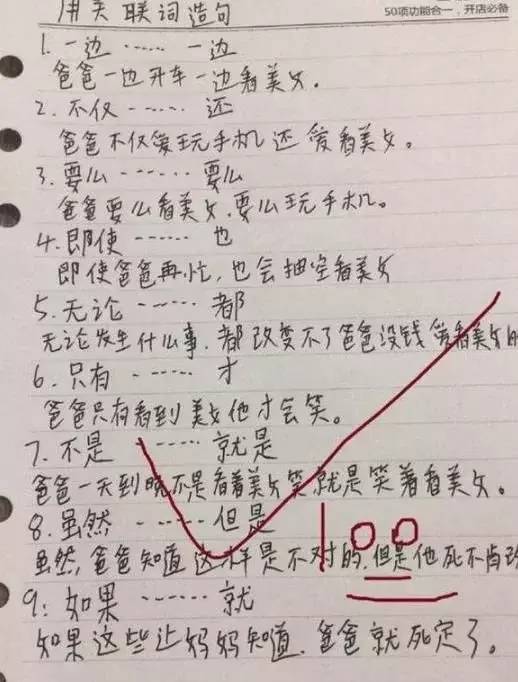 用关联词造句
50项功能合一，开店必备
1. 一边 …… 一边
爸爸一边开车一边看美女.
2. 不仅 …… 还
爸爸不仅爱玩手机还爱看美女。
3. 要么 …… 要么
爸爸要么看美女.要么玩手机。
4. 即使 …… 也
即使爸爸再忙,也会抽空看美女
5. 无论 …… 都
无论发生什么事.都改变不了爸爸没钱爱看美女的
6. 只有 …… 才
爸爸只有看到美女他才会笑。
7. 不是 …… 就是
爸爸一天到晚不是看着美女笑就是笑着看美女。
8. 虽然 …… 但是
虽然,爸爸知道这样是不对的.但是他死不肯改
9: 如果 …… 就
如果这些让妈妈知道.爸爸就死定了。
100